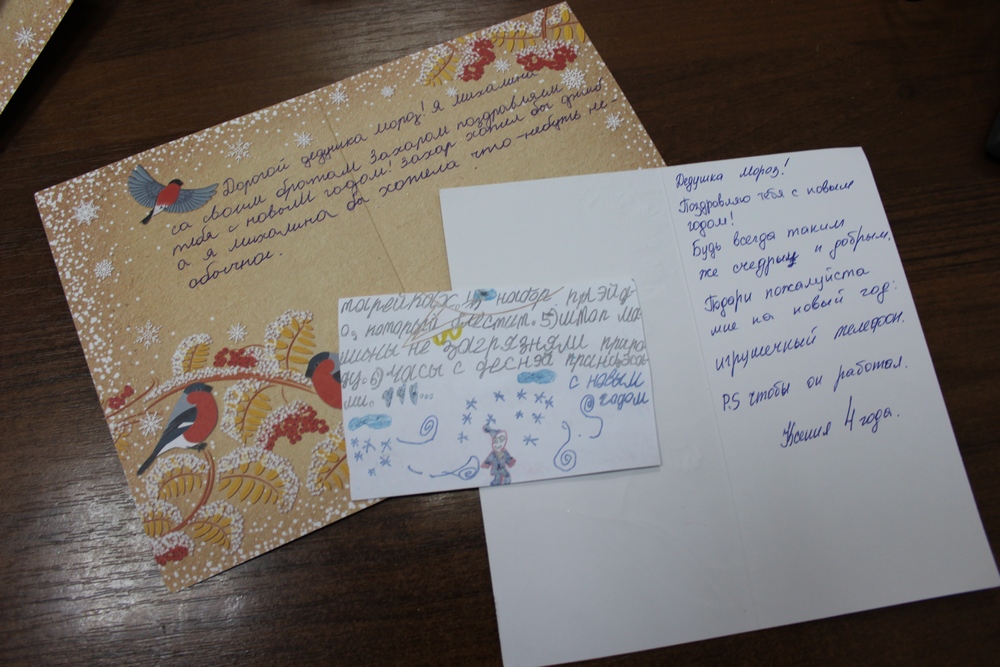 Дорогой дедушка мороз! Я михалина
са своим братам Захаром поздравляем
тебя с новым годом! Захар хотел бы джип
а я михалина бы хотела что-небуть не-
абычное.
набор плэйд
о, который блестит. 5) штоп ма-
шины не загрязняли приро-
ду. 6) часы с деснэй принцэсса-
ми.
с новым
годом
Дедушка Мороз!
Поздравляю тебя с новым
годом!
Будь всегда таким
же счедрым и добрым.
Подари пожалуйста
мне на новый год:
игрушечный телефон.
P.S чтобы он работал.
Ксения 4 года.